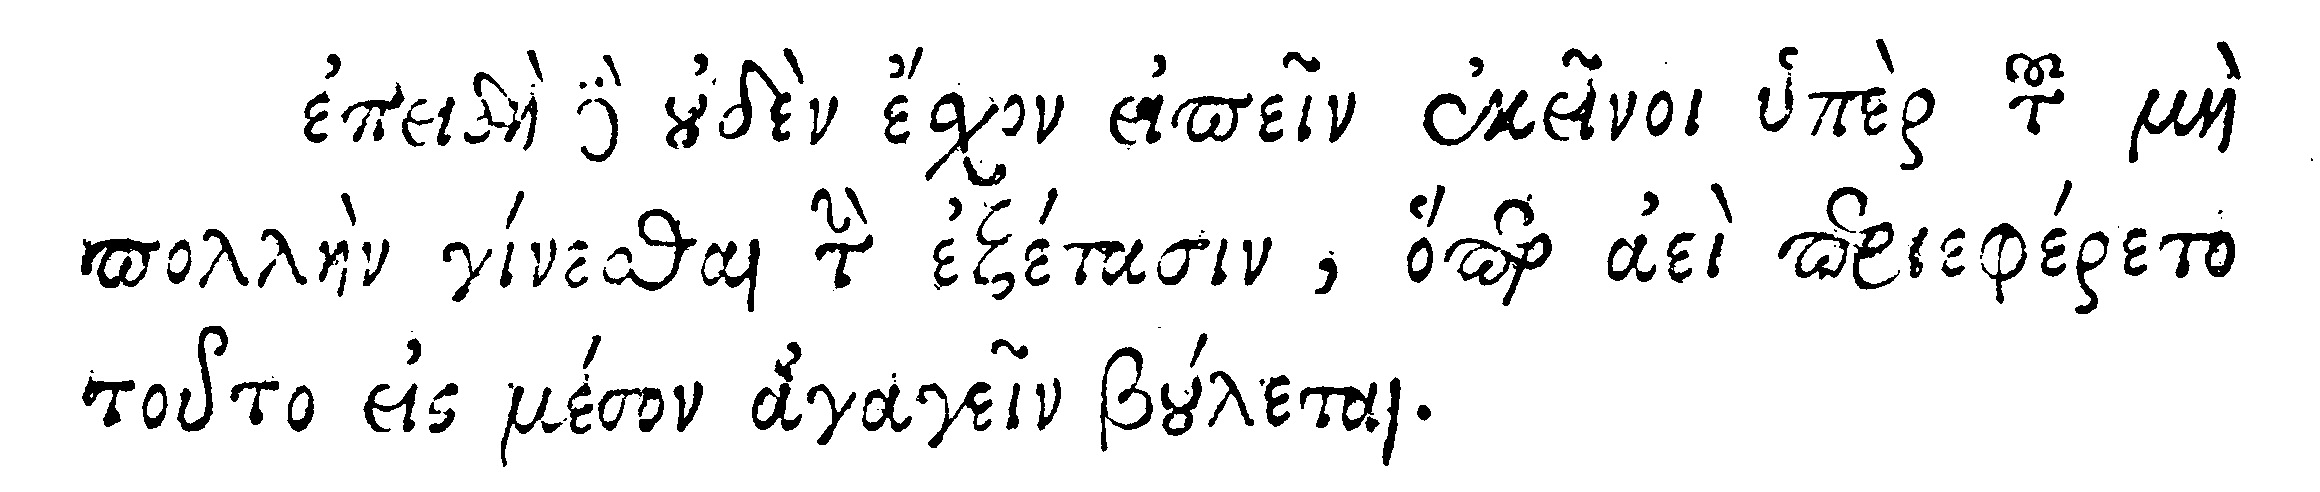 ἐπειδὴ καὶ οὐδὲν ἔχον εἰπεῖν ἐκεῖνοι ὑπὲρ τοῦ μὴ
πολλὴν γίνεσθαι τὴν ἐξέτασιν, ὅπερ ἀεὶ περιεφέρετο
τοῦτο εἰς μέσον ἀγαγεῖν βούλεται.